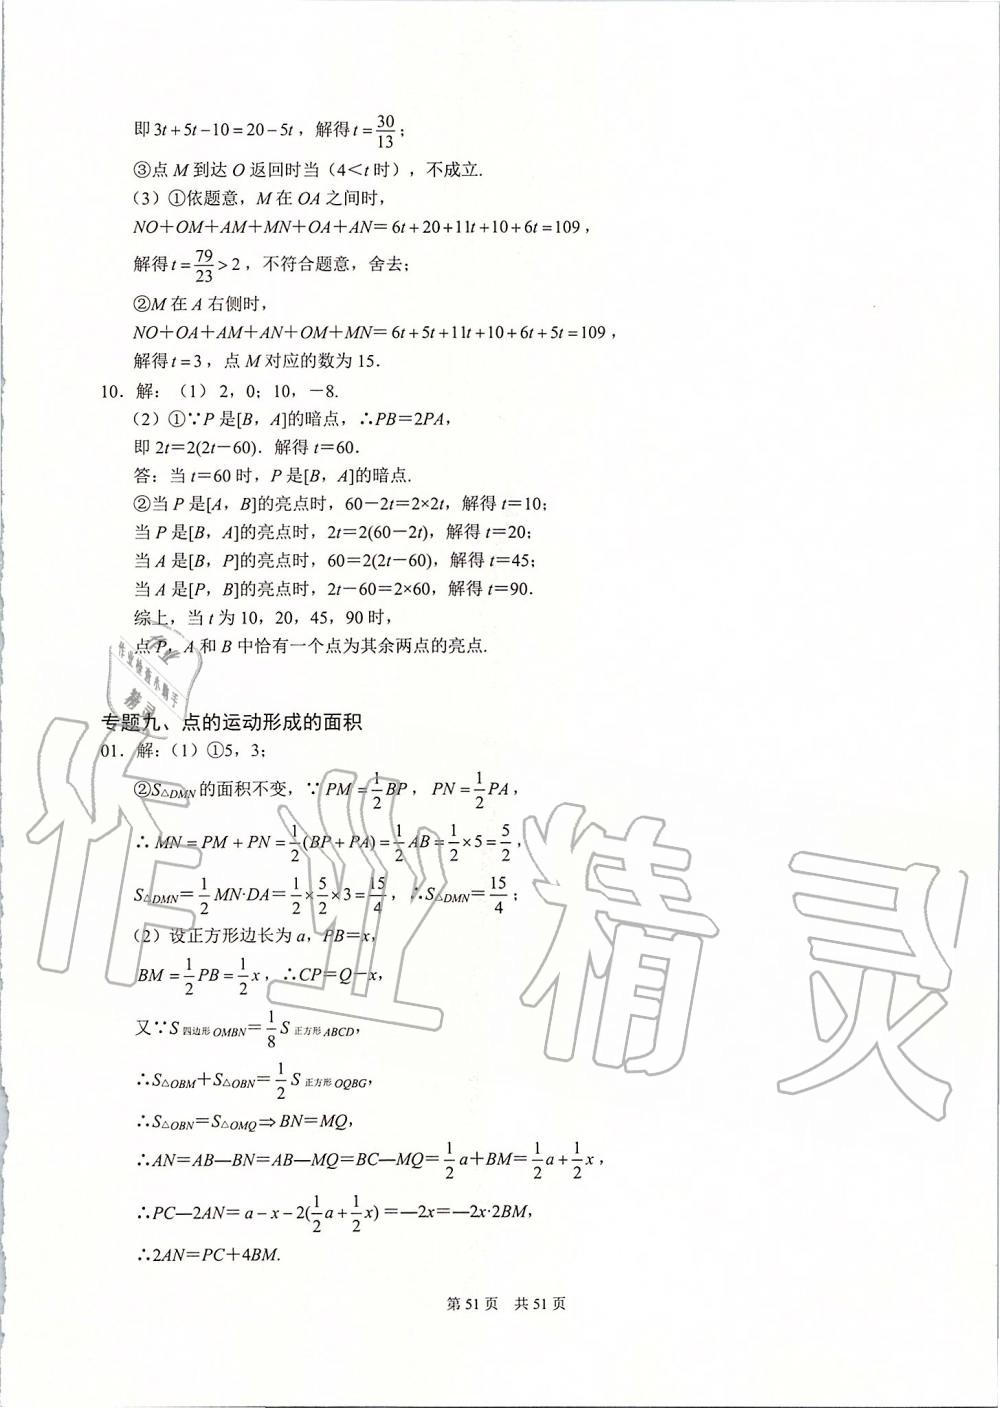 即 3t+5t−10=20−5t，解得 t=30/13；
③点 M 到达 O 返回时当（4＜t 时），不成立.
（3）①依题意，M 在 OA 之间时，
NO＋OM＋AM＋MN＋OA＋AN＝6t+20+11t+10+6t=109，
解得 t=79/23>2，不符合题意，舍去；
②M 在 A 右侧时，
NO＋OA＋AM＋AN＋OM＋MN＝6t+5t+11t+10+6t+5t=109，
解得 t=3，点 M 对应的数为 15.
10．解：（1） 2，0；10，－8.
（2）①∵P 是[B，A]的暗点，∴PB＝2PA，
即 2t＝2(2t－60)．解得 t＝60．
答：当 t＝60 时，P 是[B，A]的暗点.
②当 P 是[A，B]的亮点时，60－2t＝2×2t，解得 t＝10；
当 P 是[B，A]的亮点时，2t＝2(60－2t)，解得 t＝20；
当 A 是[B，P]的亮点时，60＝2(2t－60)，解得 t＝45；
当 A 是[P，B]的亮点时，2t－60＝2×60，解得 t＝90.
综上，当 t 为 10，20，45，90 时，
点 P，A 和 B 中恰有一个点为其余两点的亮点.
专题九、点的运动形成的面积
01．解：（1）①5，3；
②S△DMN 的面积不变，∵PM=1/2BP，PN=1/2PA，
∴MN=PM+PN=1/2(BP+PA)=1/2AB=1/2×5=5/2，
S△DMN＝1/2 MN·DA＝1/2×5/2×3=15/4，∴S△DMN＝15/4；
（2）设正方形边长为 a，PB＝x，
BM=1/2PB=1/2x，∴CP＝Q－x，
又∵S 四边形 OMBN＝1/8 S 正方形 ABCD，
∴S△OBM＋S△OBN＝1/2 S 正方形 OQBG，
∴S△OBN＝S△OMQ⇒BN＝MQ，
∴AN＝AB—BN＝AB—MQ＝BC—MQ＝1/2a＋BM＝1/2a+1/2x，
∴PC—2AN＝a−x−2(1/2a+1/2x)＝—2x＝—2x·2BM，
∴2AN＝PC＋4BM.
第 51 页 共 51 页
作业精灵
作业检查小助手
精灵